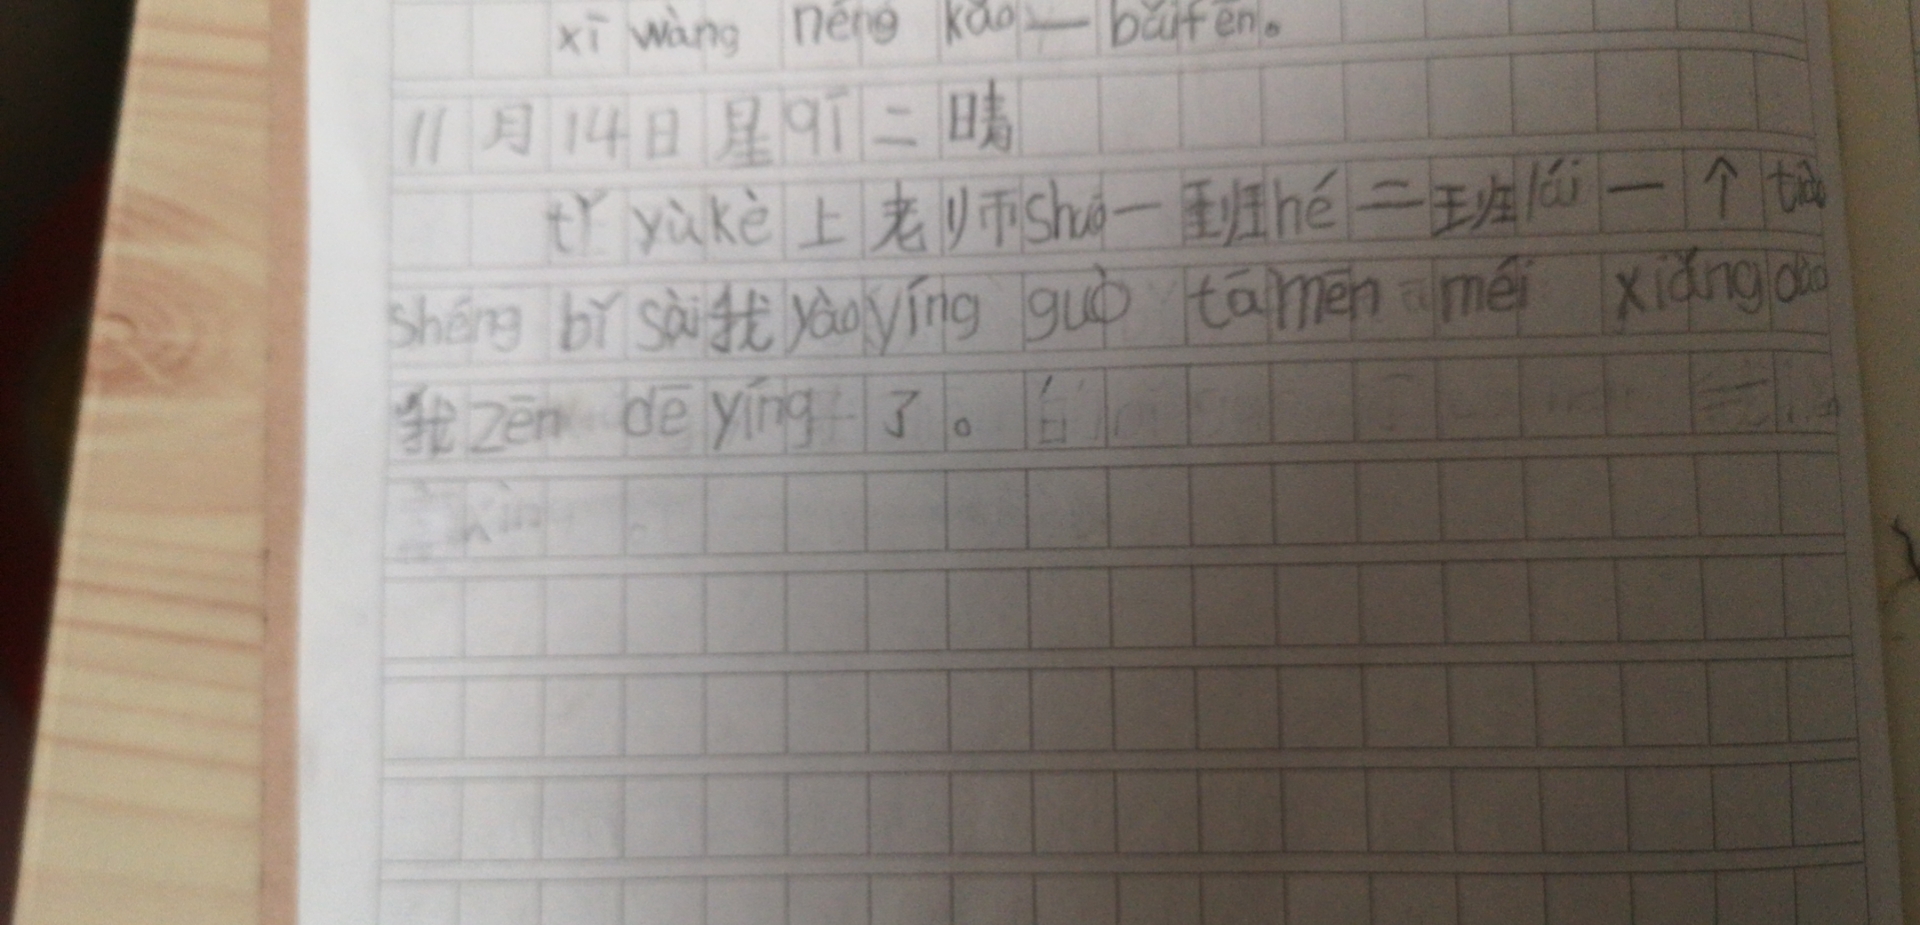 xī wàng néng kǎo一bǎifēn。
11月14日星qī二晴
tǐ yùkè上老师shuō一班hé二班lái一个tiào
shéng bǐ sài我yàoyíng guò tāmēn méi xiǎngdào
我zēn dē yíng了。